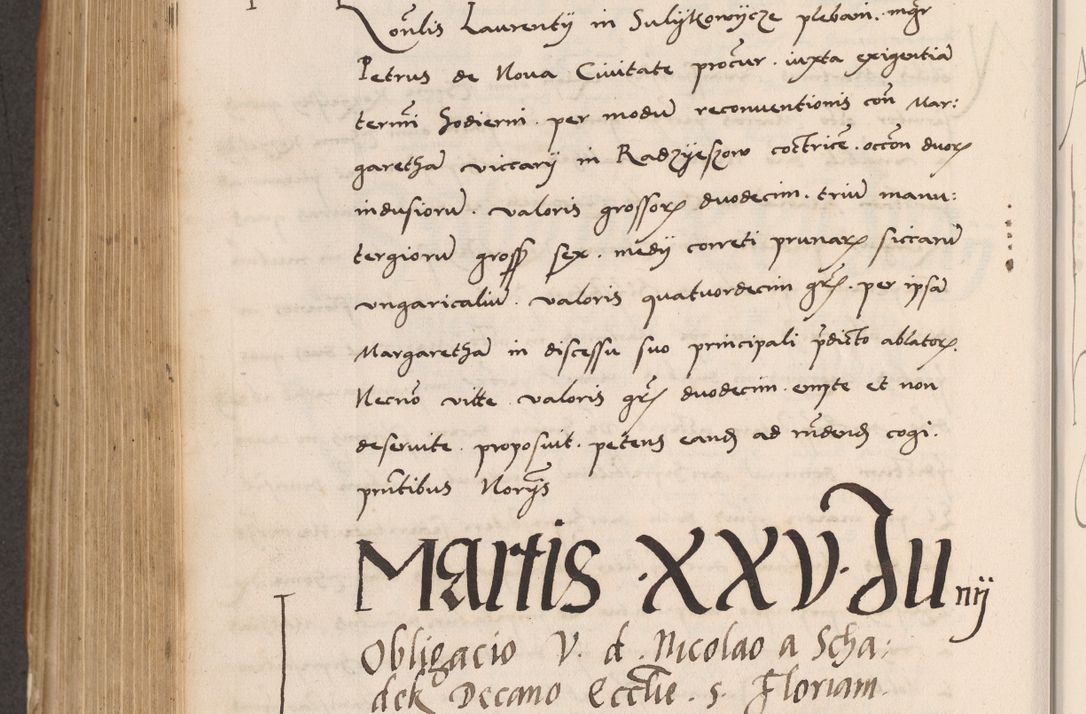 Consulis Laurentÿ in Sulÿkowÿcze plebani. mgr̃
Petrus de Nova Civitate procur̃. iuxta exigentiã
termĩ hodierni. per modũ reconventionis con̄ Mar:
garethã viccarÿ in Radzÿeszow coctricẽ. occõn duorꝝ
indusiorũ. valoris grossorꝝ duodecim. triũ manu:
tergiorũ gross̃ sex. medÿ correti prunarꝝ siccarũ
ungaricaliũ. valoris quatuordecim gr̃. per ipsã
Margarethã in discessu suo principali p̃dicto ablatorꝝ.
Necnõ vitte. valoris gr̃ duodecim. empte et non
deservite. proposuit. petens eandẽ ad rñdendũ cogi.
pñtibus Norÿs
Martis .XXV. Junÿ
Obligacio V. d. Nicolao a Scha:
dek Decano Ecclie. s. Floriani